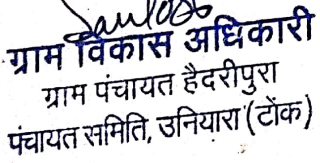 ग्राम विकास अधिकारी
ग्राम पंचायत हैदरीपुरा
पंचायत समिति, उनियारा (टोंक)